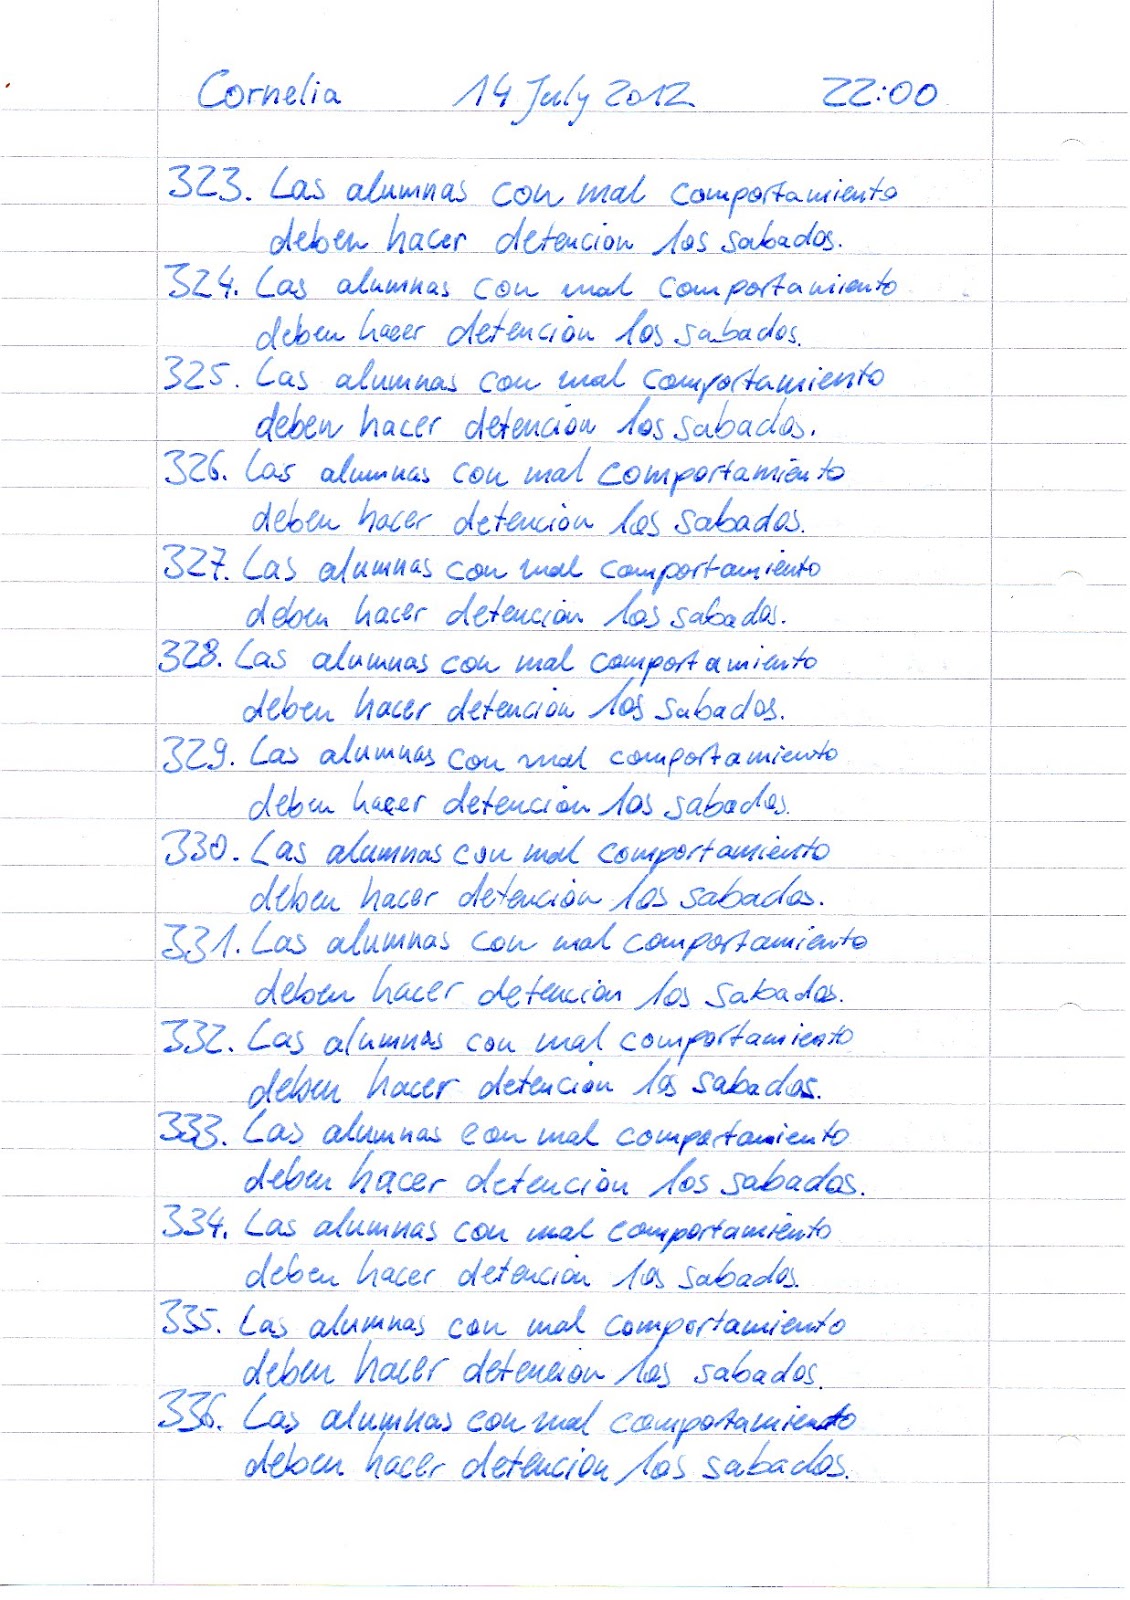 Cornelia 14 July 2012 22:00
323. Las alumnas con mal comportamiento
deben hacer detencion los sabados.
324. Las alumnas con mal comportamiento
deben hacer detencion los sabados.
325. Las alumnas con mal comportamiento
deben hacer detencion los sabados.
326. Las alumnas con mal comportamiento
deben hacer detencion los sabados.
327. Las alumnas con mal comportamiento
deben hacer detencion los sabados.
328. Las alumnas con mal comportamiento
deben hacer detencion los sabados.
329. Las alumnas con mal comportamiento
deben hacer detencion los sabados.
330. Las alumnas con mal comportamiento
deben hacer detencion los sabados.
331. Las alumnas con mal comportamiento
deben hacer detencion los sabados.
332. Las alumnas con mal comportamiento
deben hacer detencion los sabados.
333. Las alumnas con mal comportamiento
deben hacer detencion los sabados.
334. Las alumnas con mal comportamiento
deben hacer detencion los sabados.
335. Las alumnas con mal comportamiento
deben hacer detencion los sabados.
336. Las alumnas con mal comportamiento
deben hacer detencion los sabados.